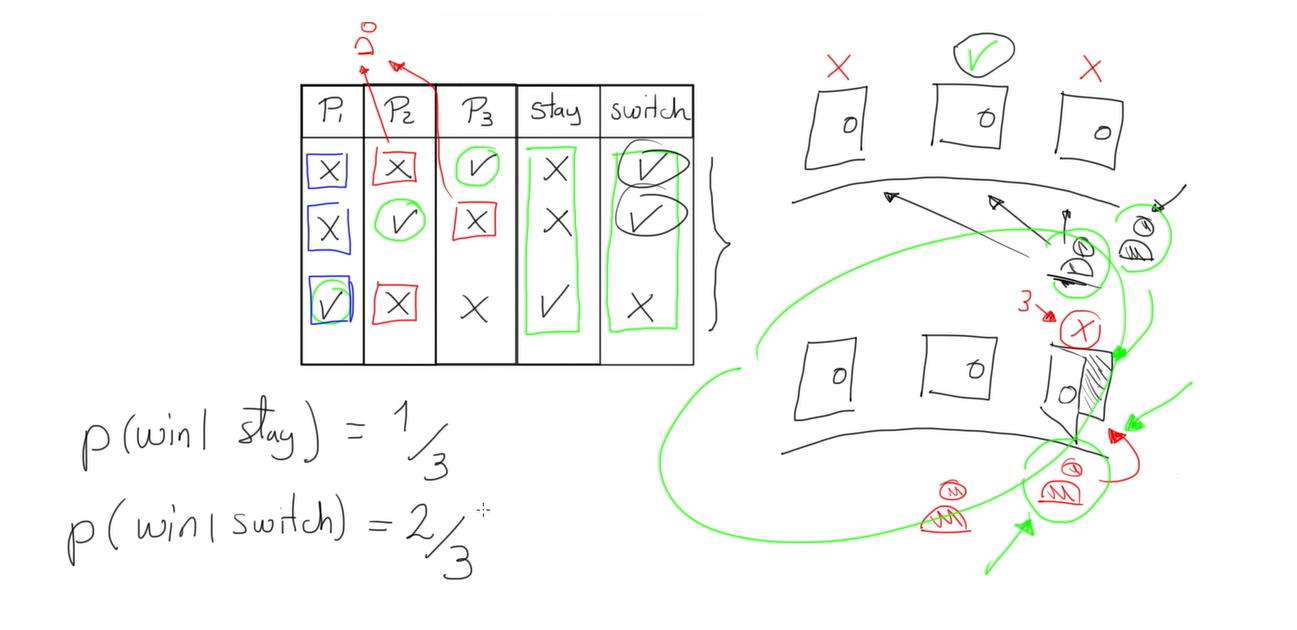 Do
P₁ P₂ P₃ stay switch
X X ✓ X ✓
X ✓ X X ✓
✓ X X ✓ X
p(win| stay) = 1/3
p(win| switch) = 2/3
X ✓ X
Do
3
X